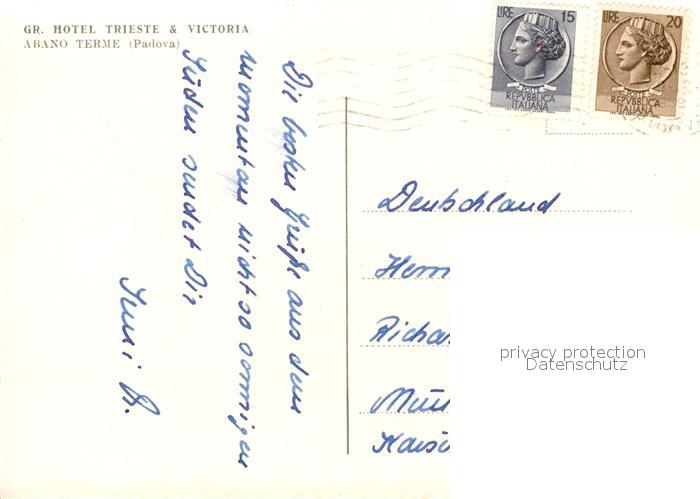 GR. HOTEL TRIESTE & VICTORIA
ABANO TERME (Padova)
LIRE 15
POSTE
REPVBBLICA
ITALIANA
LIRE 20
POSTE
REPVBBLICA
ITALIANA
Die besten Grüße aus dem
momentan nicht so sonnigen
Süden sendet Dir
Deutschland
Herrn
Kais
privacy protection
Datenschutz